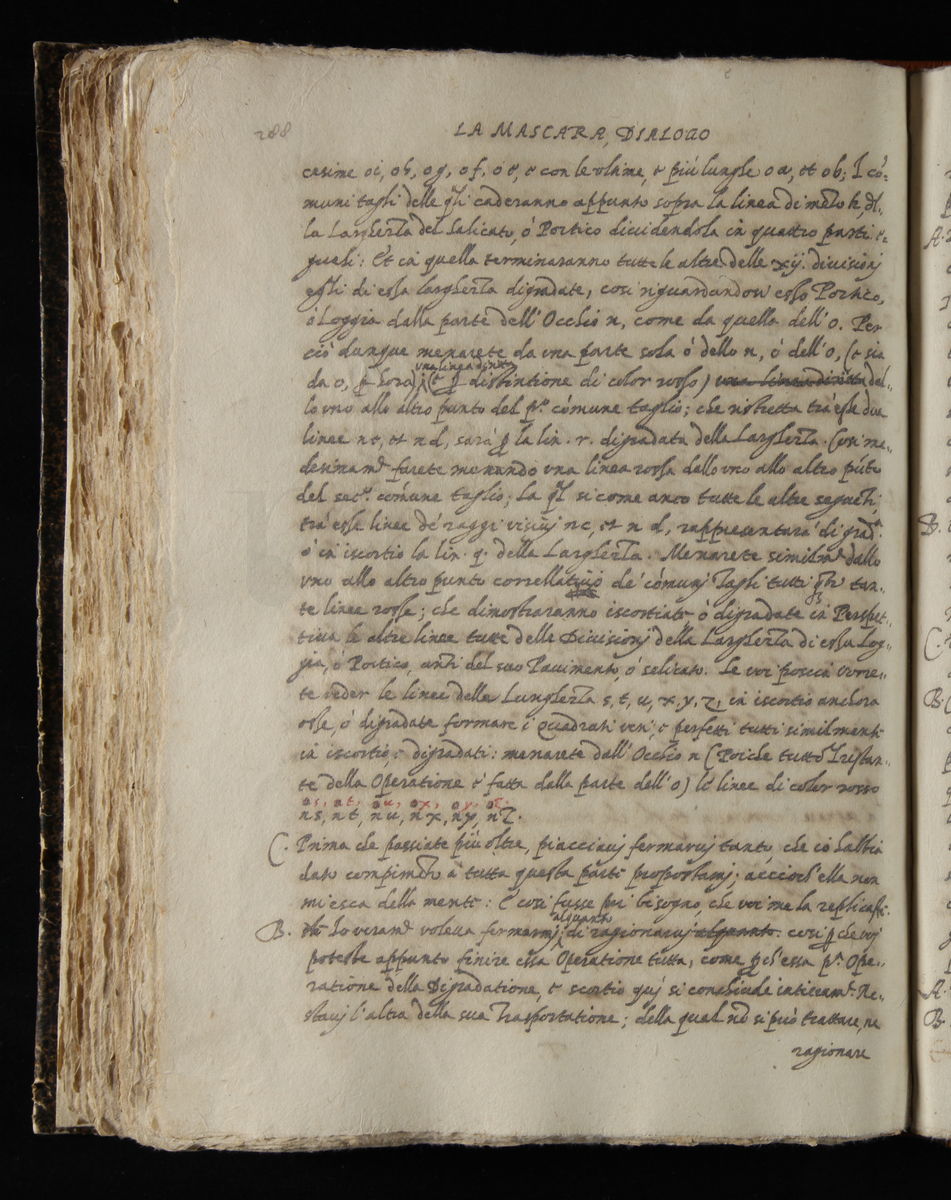 288
LA MASCARA, DIALOGO
cesime oi, oh, og, of, oe, e con le ultime, e più lunghe oa, et ob; I cō=
muni tagli delle q̃li caderanno appunto sopra la linea di mezo k, del,,
la Larghezza del Salicato, ò Portico dividendola in quattro parti e,,
guali: Et in quella terminaranno tutte le altre delle xij. divisionj
eg̃li di essa larghezza digradate, cosi riguardandosi esso Portico,
ò Loggia dalla parte dell'Occhio n, come da quella dell'o. Per
ciò dunque menarete da vna parte sola ò dello n, ò dell'o, (e sia
da o, p̱ hora) (e p̱ distintione di color rosso) vna linea diritta del,,
vna linea diritta
lo vno allo altro punto del p.º cómune taglio; che ristretta trà esse due
linee nc, et nd, sarà p̱ la lin. r. digradata della Larghezza. Cosi me,,
desimam.ᵗᵉ farete menando vna linea rossa dallo vno allo altro pūto
del sec.º cómune taglio; la q̃l si come anco tutte le altre segueñti,
trà esse linee de' raggi visiuj nc, et nd, rappresentarà digrad.ᵃ
ò in iscortio la lin. q. della Larghezza. Menarete similm.ᵗᵉ dallo
vno allo altro punto correllatiuo de' cómunj Tagli tutti tan,,
te linee rosse; che dimostraranno iscortiate ò digradate in Perspet,,
tiua le altre linee tutte delle Divisionj della Larghezza di essa Log,,
gia, ò Portico, anzi del suo Pavimento, ò selicato. Se voi poscia vorre,,
te veder le linee delle Lunghezza s, t, u, x, y, z, in iscortio anchora
esse, ò digradate formare i Quadrati veri, e perfetti tutti similmente
in iscortio, e digradati: menarete dall'Occhio n (Poiche tutto'l restan,,
te della Operatione è fatta dalla parte dell'o) le linee di color rosso
os, ot, ou, ox, oy, oz.
ns, nt, nu, nx, ny, nz.
C. Prima che passiate più oltre, piacciauj fermaruj tanto, che io habbia
dato compimento à tutta questa parte propostamj; acciochè ella non
mi esca della mente: E cosi fusse poi bisogno, che voi me la replicaste.
B. Io veram.ᵗᵉ voleua fermarmj di ragionaruj alquanto. cosi p̱che voj
alquanto
poteste appunto finire essa Operatione tutta, come p̱ch'essa p.ᵃ Ope,,
ratione della Digradatione, e scortio quj si conchiude intieram.ᵗᵉ. Re,,
stauj l'altra della sua Trasportatione; della qual nō si può trattare, ne
ragionare